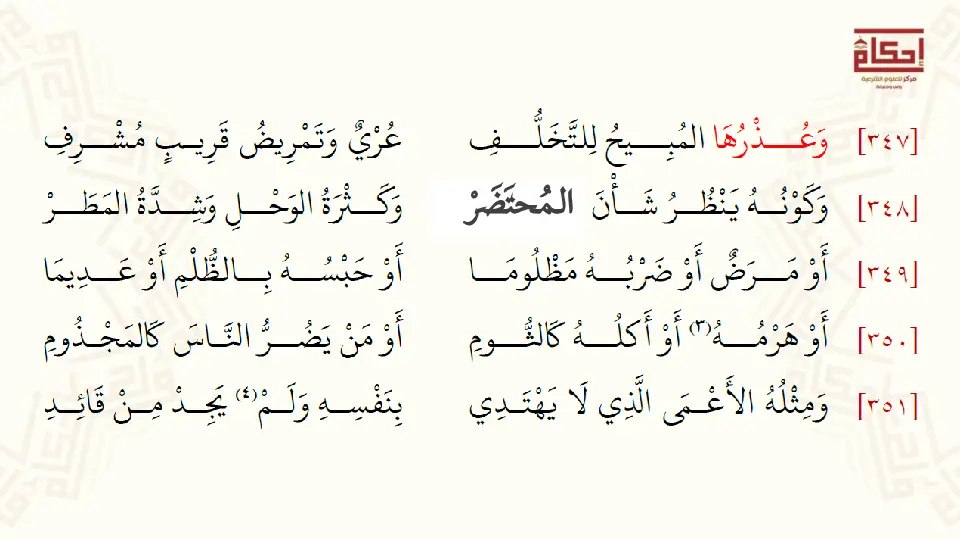 إحكام
مركز للعلوم الشرعية
[٣٤٧] وَعُـــذْرُهَا المُبِـــيحُ لِلتَّخَلُّـــفِ عُرْيٌ وَتَمْرِيضُ قَرِيـبٍ مُشْـرِفِ
[٣٤٨] وَكَوْنُـــهُ يَنْظُـــرُ شَـــأْنَ المُحتَضَرْ وَكَـــثْرَةُ الوَحْـــلِ وَشِـــدَّةُ المَطَـــرْ
[٣٤٩] أَوْ مَـــرَضٌ أَوْ ضَرْبُـــهُ مَظْلُومَـــا أَوْ حَبْسُـــهُ بِـــالظُّلْمِ أَوْ عَـــدِيمَا
[٣٥٠] أَوْ هَرْمُـــهُ(٣) أَوْ أَكلُـــهُ كَالثُّـــومِ أَوْ مَنْ يَضُـــرُّ النَّـاسَ كَالمَجْـذُومِ
[٣٥١] وَمِثْلُهُ الأَعْـمَى الَّذِي لَا يَهْتَـدِي بِنَفْسِـهِ وَلَـمْ(٤) يَجِـدْ مِـنْ قَائِـدِ